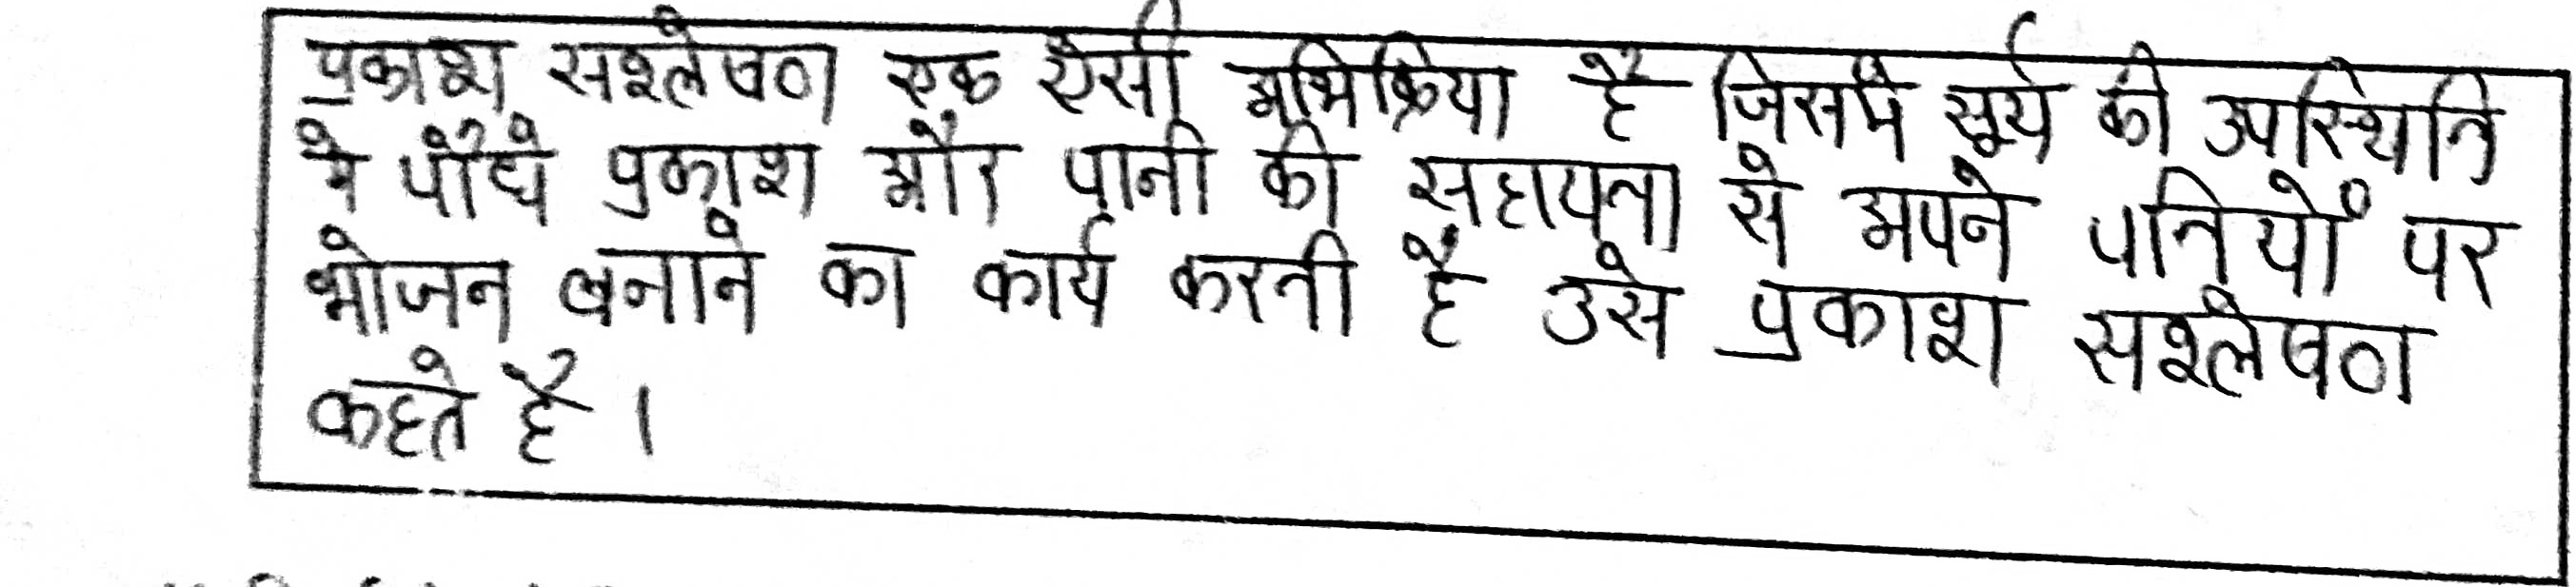 प्रकाश सश्लेषण एक ऐसी अभिक्रिया है जिसमे सूर्य की उपस्थिति
मे पौधे प्रकाश और पानी की सहायता से अपने पतियों पर
भोजन बनाने का कार्य करती है उसे प्रकाश सश्लेषण
कहते है ।